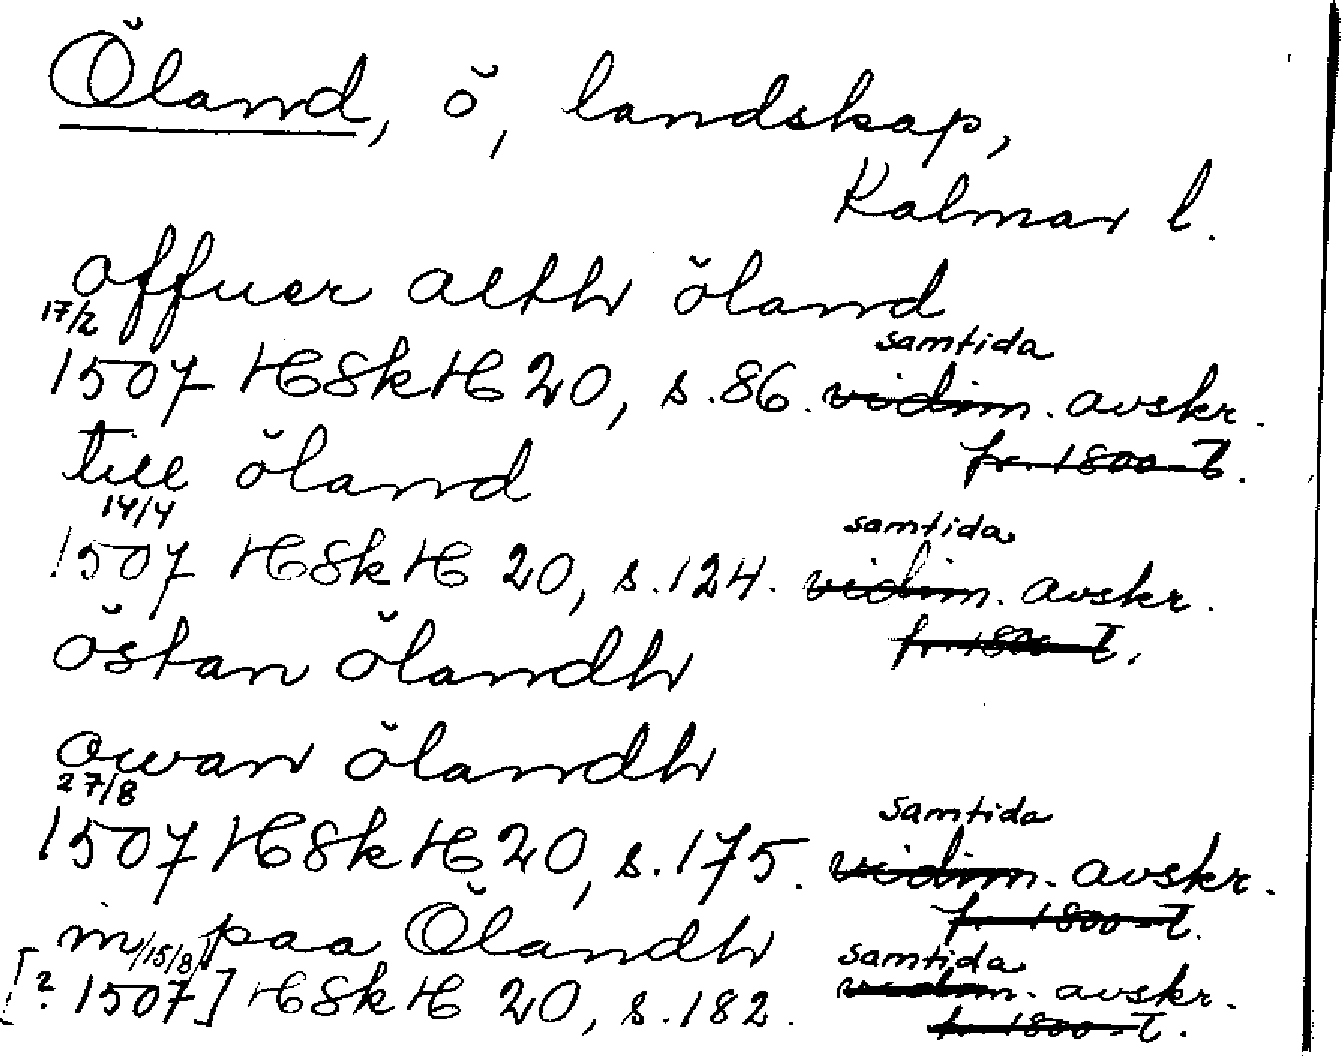 Öland, ö, landskap,
Kalmar l.
offuer alth öland
17/2
samtida
1507 HSkH 20, s. 86. vidim. avskr.
fr. 1800-t.
till öland
14/4
samtida
1507 HSkH 20, s. 124. vidim. avskr.
fr. 1800-t.
östan ölandh
owan ölandh
27/8
samtida
1507 HSkH 20, s. 175. vidim. avskr.
fr. 1800-t.
in paa Ölandh
/15/8/
samtida
[? 1507] HSkH 20, s. 182. vidim. avskr.
fr. 1800-t.